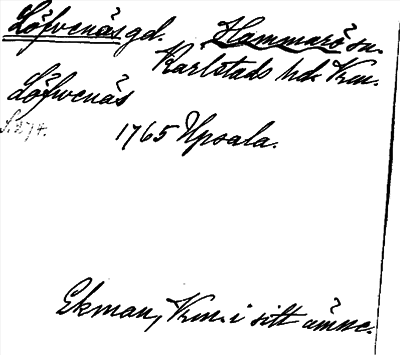 Löfvenäs gd. Hammarö sn.
Karlstads hd. Vrm.
Löfwenäs
S. 274.
1765 Upsala.
Ekman, Vrm. i sitt ämne.